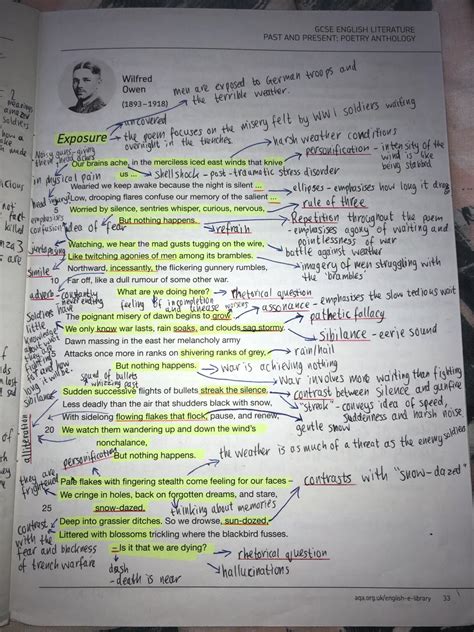 GCSE ENGLISH LITERATURE
PAST AND PRESENT: POETRY ANTHOLOGY
Wilfred
Owen
(1893–1918)
men are exposed to German troops and
the terrible weather.
uncovered
Exposure
the poem focuses on the misery felt by WW1 soldiers waiting
overnight in the trenches
harsh weather conditions
personification - intensity of the
wind is like
being stabbed
Our brains ache, in the merciless iced east winds that knive
us ...
in physical pain
shell shock - post-traumatic stress disorder
Wearied we keep awake because the night is silent ...
ellipses - emphasises how long it drags
Low, drooping flares confuse our memory of the salient ...
head injury
rule of three
Worried by silence, sentries whisper, curious, nervous,
emphasises
confusion
But nothing happens.
idea of fear
refrain
Repetition throughout the poem
- emphasises agony of waiting and
pointlessness of war
Watching, we hear the mad gusts tugging on the wire,
battle against weather
Like twitching agonies of men among its brambles.
simile
imagery of men struggling with
the 'brambles'
Northward, incessantly, the flickering gunnery rumbles,
10 Far off, like a dull rumour of some other war.
adverb - constantly
never ending
What are we doing here?
rhetorical question
feeling of incompletion
assonance - emphasises the slow tedious wait
The poignant misery of dawn begins to grow ...
pathetic fallacy
We only know war lasts, rain soaks, and clouds sag stormy.
Sibilance - eerie sound
Dawn massing in the east her melancholy army
Attacks once more in ranks on shivering ranks of grey,
rain/hail
But nothing happens.
war is achieving nothing
sound of bullets
whizzing past
war involves more waiting than fighting
Sudden successive flights of bullets streak the silence.
contrast between silence and gunfire
Less deadly than the air that shudders black with snow,
"streak" - conveys idea of speed,
suddenness and harsh noise
With sidelong flowing flakes that flock, pause, and renew,
gentle snow
20 We watch them wandering up and down the wind's
nonchalance,
alliteration
But nothing happens.
personification
the weather is as much of a threat as the enemy soldiers
Pale flakes with fingering stealth come feeling for our faces –
they are
frightened
We cringe in holes, back on forgotten dreams, and stare,
contrasts with "snow-dazed"
25 snow-dazed,
thinking about memories
Deep into grassier ditches. So we drowse, sun-dozed,
Littered with blossoms trickling where the blackbird fusses.
contrast
with the
fear and blackness
of trench warfare
– Is it that we are dying?
rhetorical question
dash
- death is near
hallucinations
aqa.org.uk/english-e-library 33